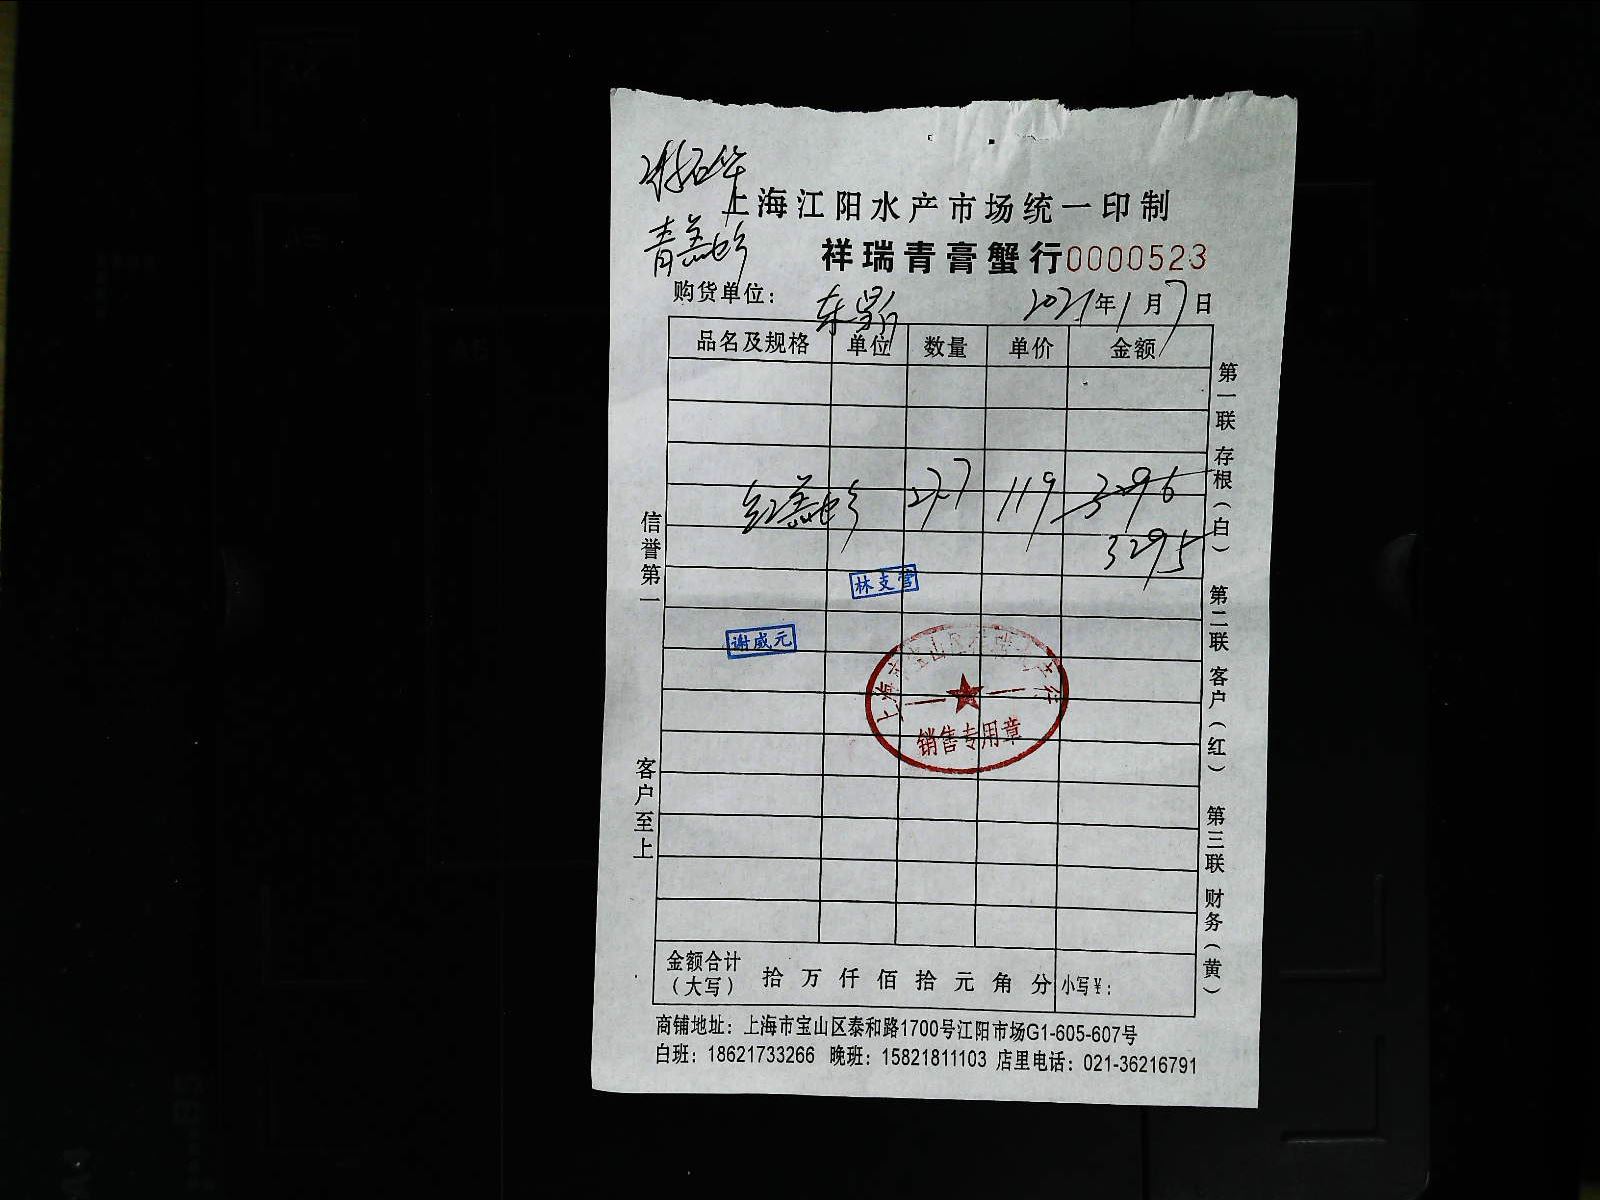 上海江阳水产市场统一印制
祥瑞青膏蟹行 0000523
购货单位：
2021年1月7日
品名及规格 单位 数量 单价 金额
27.7 119 3296
3295
林支营
谢威元
销售专用章
金额合计（大写） 拾 万 仟 佰 拾 元 角 分 小写￥：
商铺地址：上海市宝山区泰和路1700号江阳市场G1-605-607号
白班：18621733266 晚班：15821811103 店里电话：021-36216791
信誉第一
客户至上
第一联 存根（白） 第二联 客户（红） 第三联 财务（黄）